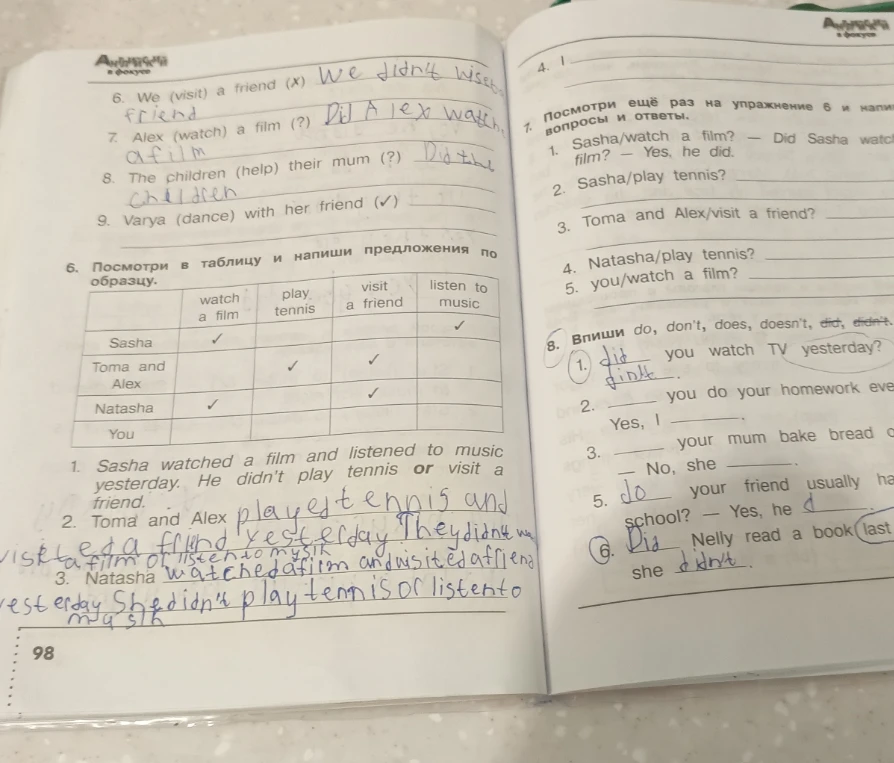 Английский
в фокусе
6. We (visit) a friend (✗) We didn't viset
friend
7. Alex (watch) a film (?) Did Alex watch
a film
8. The children (help) their mum (?) Did the
children
9. Varya (dance) with her friend (✓)
6. Посмотри в таблицу и напиши предложения по
образцу.
watch a film play tennis visit a friend listen to music
Sasha ✓ ✓
Toma and Alex ✓ ✓
Natasha ✓ ✓
You
1. Sasha watched a film and listened to music
yesterday. He didn't play tennis or visit a
friend.
2. Toma and Alex played tennis and
viseted a friend yesterday They didn't wa
a film or listen to mysik
3. Natasha watched a film and visited a friend
yesterday She didn't play tennis or listen to
mysik
98
Английский
в фокусе
4. I
7. Посмотри ещё раз на упражнение 6 и напи
вопросы и ответы.
1. Sasha/watch a film? — Did Sasha watc
film? — Yes, he did.
2. Sasha/play tennis?
3. Toma and Alex/visit a friend?
4. Natasha/play tennis?
5. you/watch a film?
8. Впиши do, don't, does, doesn't, did, didn't.
1. did you watch TV yesterday?
didt.
2. you do your homework eve
Yes, I .
3. your mum bake bread
— No, she .
5. do your friend usually ha
school? — Yes, he d .
6. Did Nelly read a book last
she didn't.